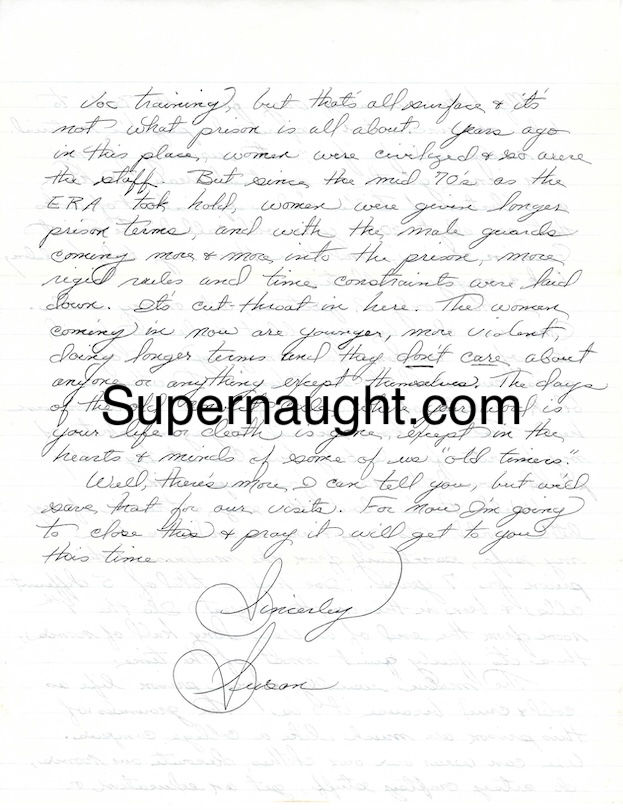 voc training, but that's all surface & it's
not what prison is all about. Years ago
in this place, women were civilized & so were
the staff. But since the mid 70's as the
ERA took hold, women were given longer
prison terms, and with the male guards
coming more & more into the prison, more
rigid rules and time constraints were laid
down. It's cut-throat in here. The women
coming in now are younger, more violent,
doing longer terms and they don't care about
anyone or anything except themselves. The days
of the old is
Supernaught.com
your life or death is gone, except in the
hearts & minds of some of us "old timers."
Well, there's more I can tell you, but we'll
save that for our visits. For now I'm going
to close this & pray it will get to you
this time.
Sincerley
Susan